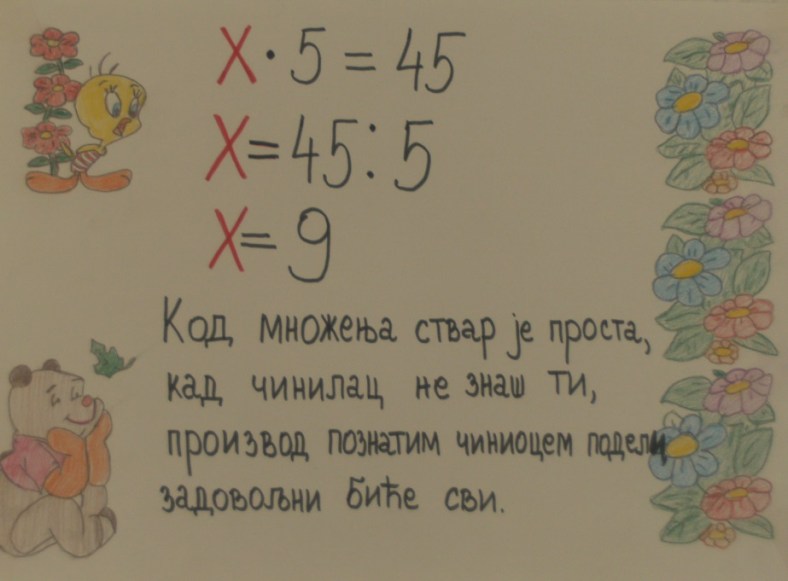 X · 5 = 45
X = 45 : 5
X = 9
Код множења ствар је проста,
кад чинилац не знаш ти,
производ познатим чиниоцем подели
задовољни биће сви.